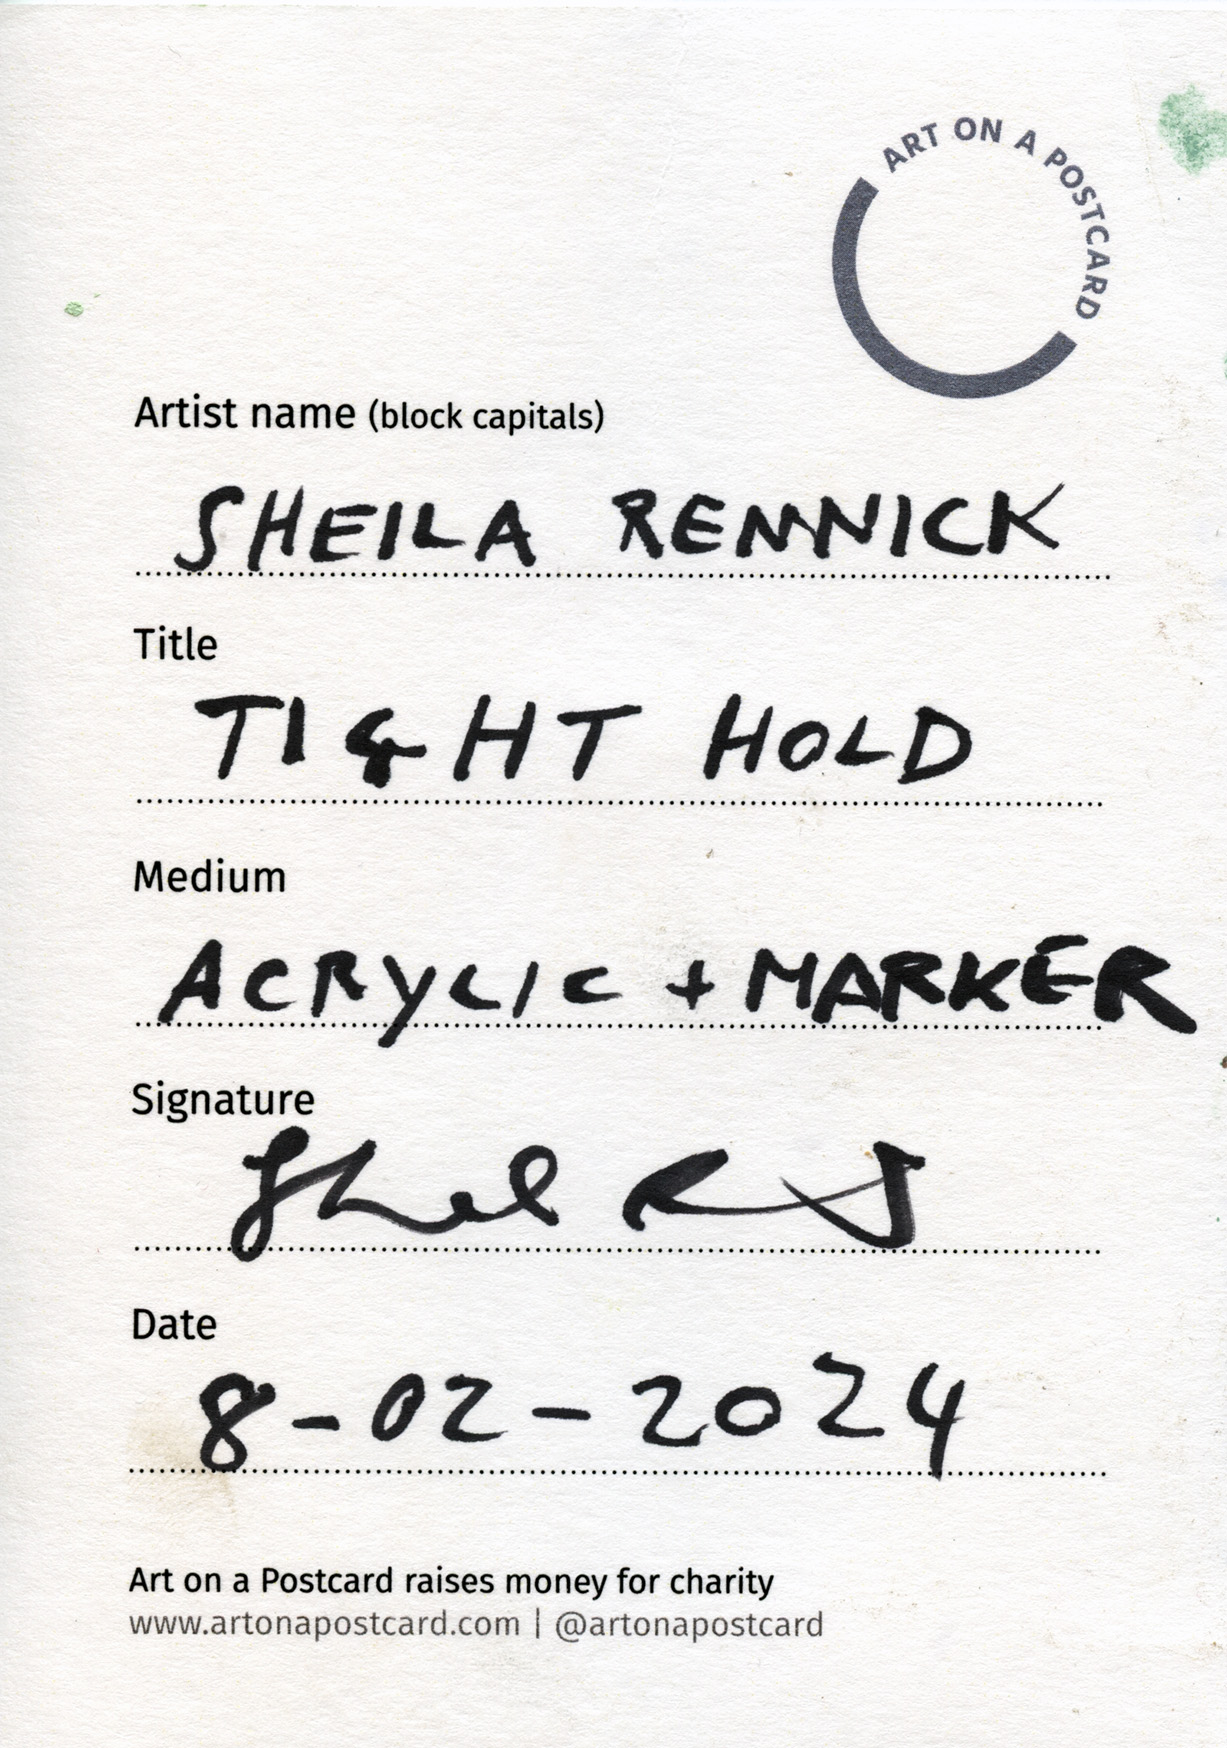 ART ON A POSTCARD
Artist name (block capitals)
SHEILA RENNICK
Title
TIGHT HOLD
Medium
ACRYLIC + MARKER
Signature
Date
8-02-2024
Art on a Postcard raises money for charity
www.artonapostcard.com | @artonapostcard